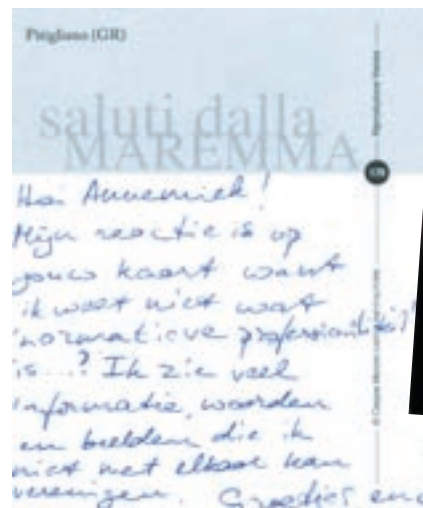 Pitigliano (GR)
saluti dalla
MAREMMA
Hoi Annemiek!
Mijn reactie is op
jouw kaart want
ik weet niet wat
'normatieve professionaliteit'
is...? Ik zie veel
informatie, woorden
en beelden die ik
niet met elkaar kan
verenigen. Groetjes